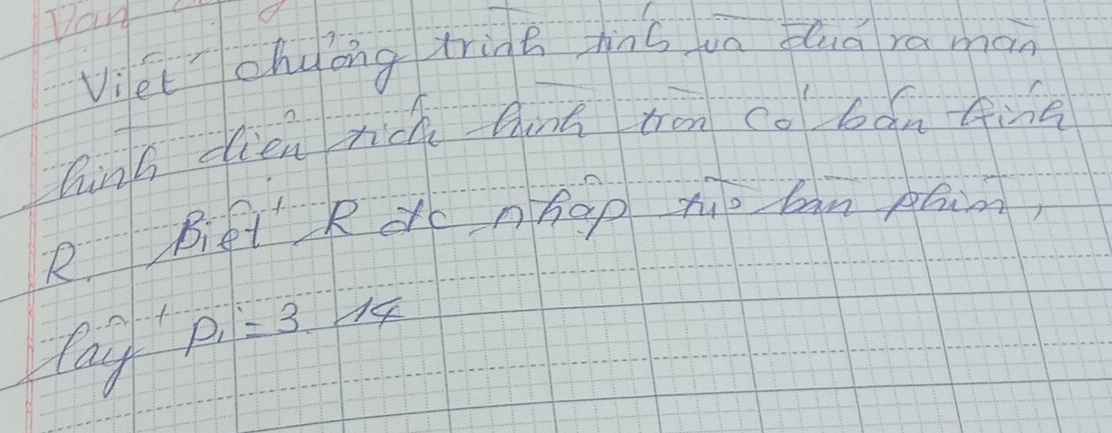 Viết chương trình tính và đưa ra màn
hình diện tích hình tròn có bán kính
R. Biết R đc nhập từ bàn phím,
lấy pi = 3.14